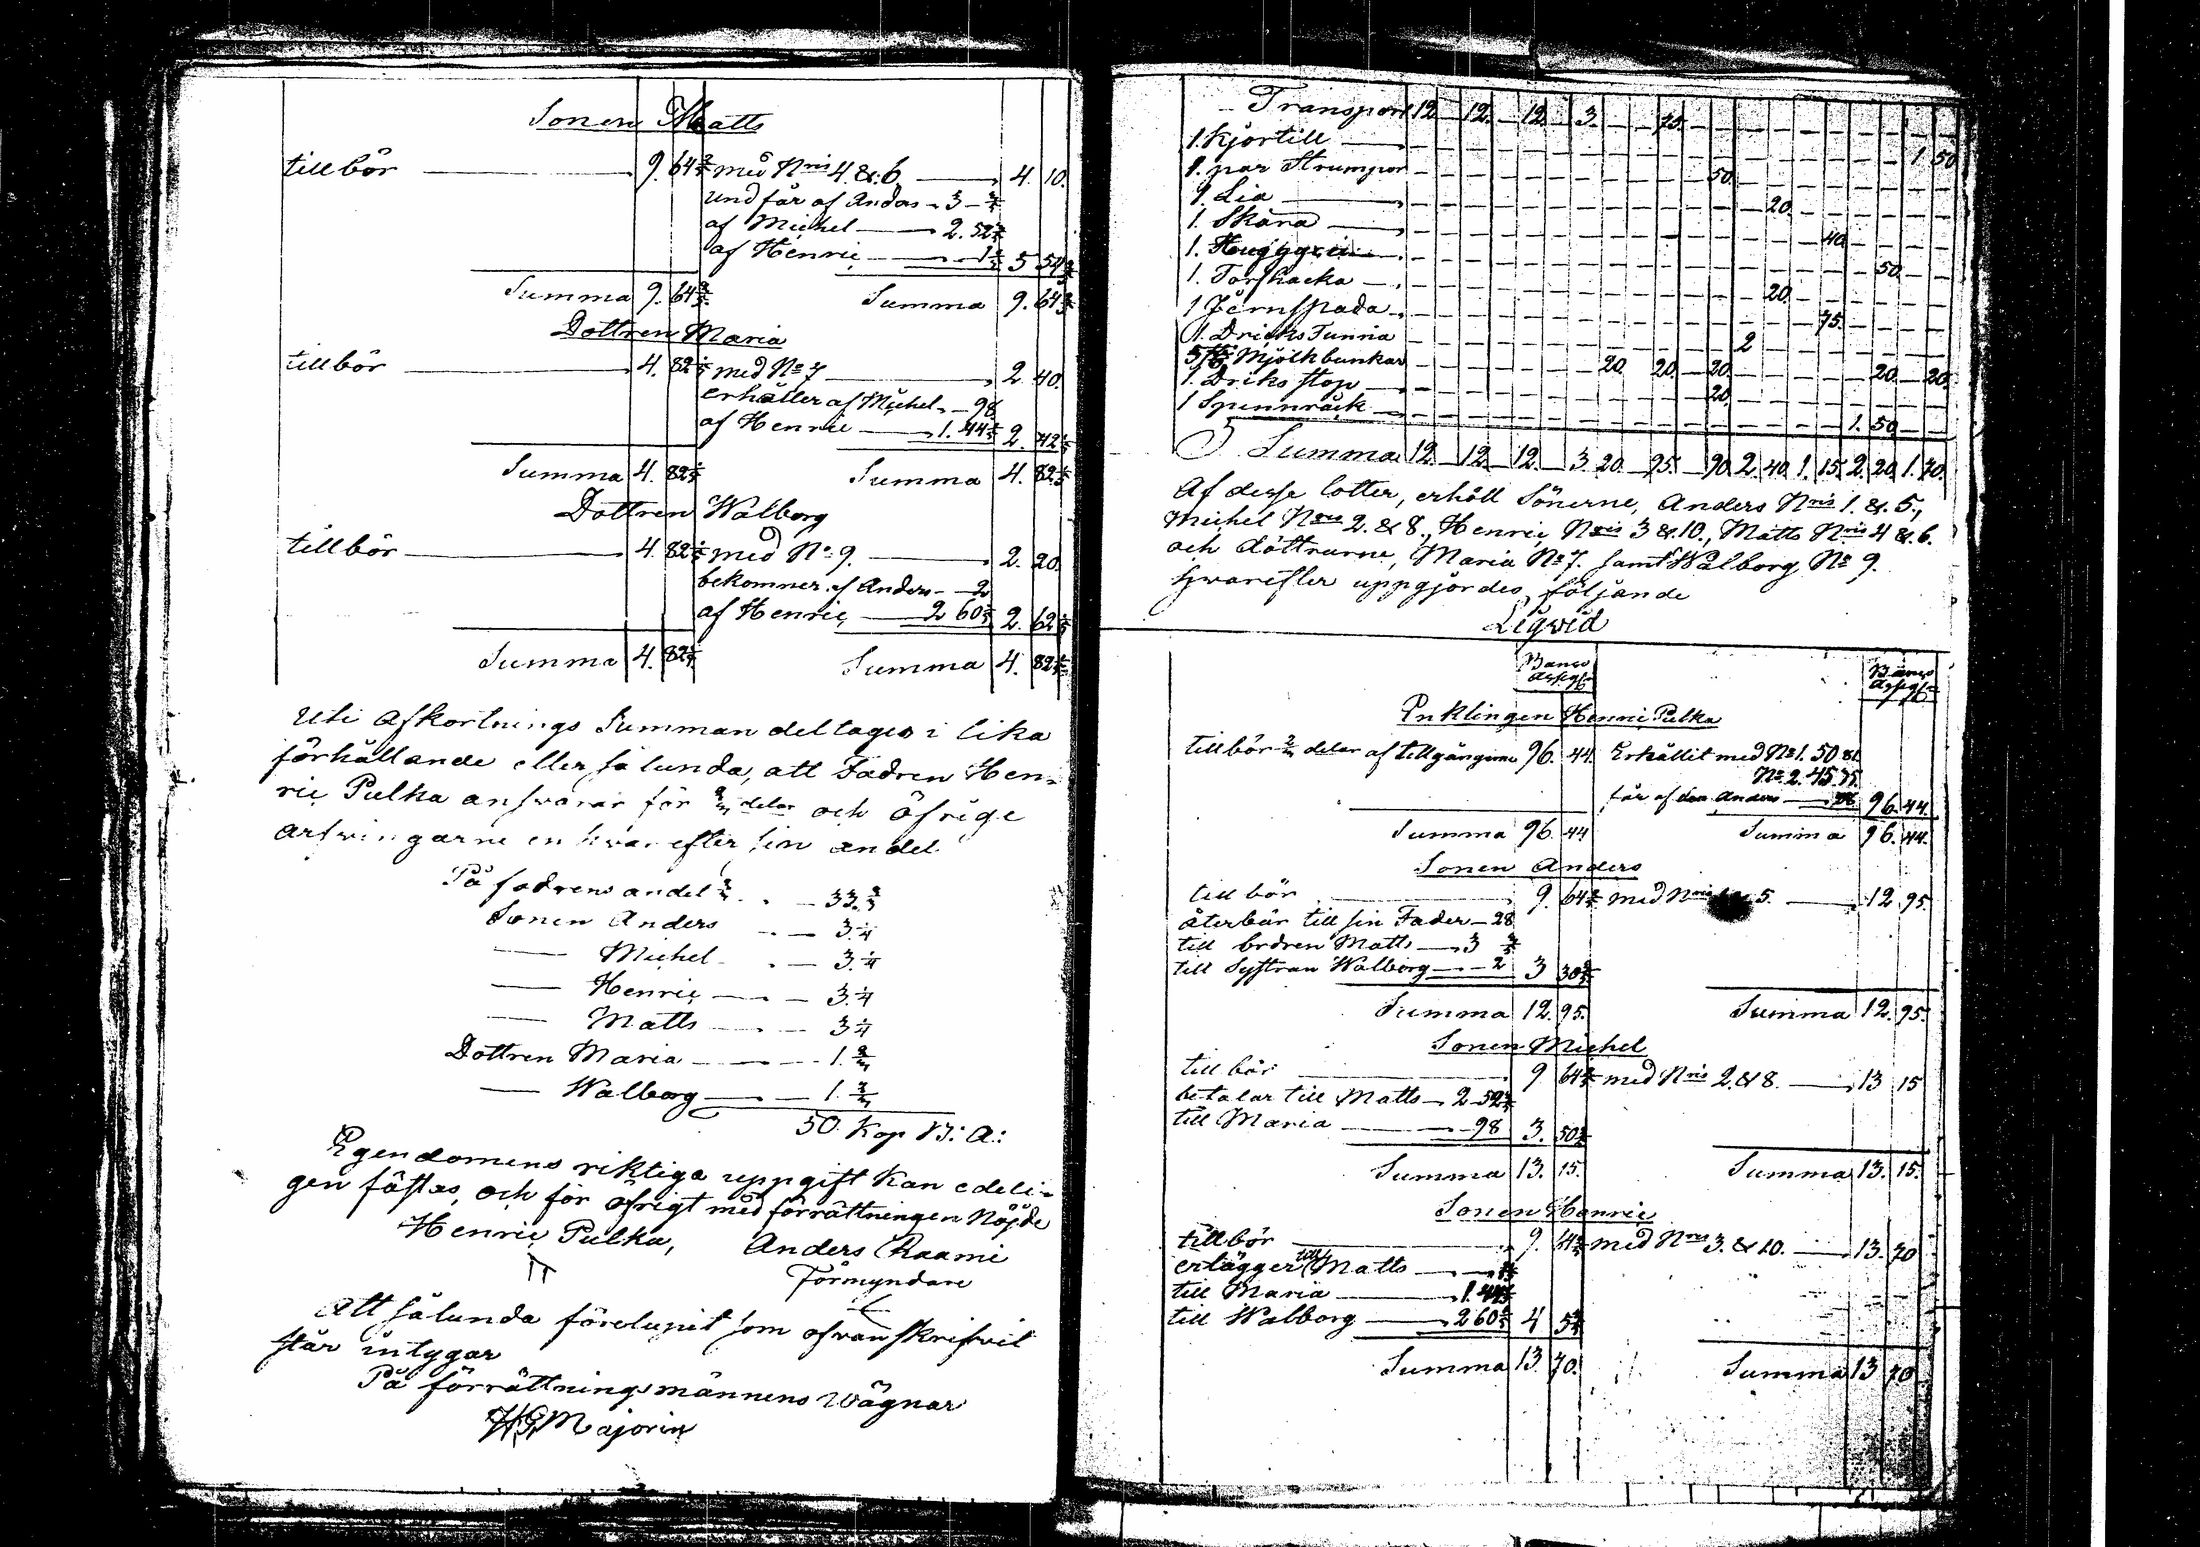 Sonen Matts
till bör — 9. 64 2/7 med Nris 4 & 6 — 4. 10.
undfår af Anders — 3 — 2/7
af Michel — 2. 52
af Henric — 1 5 54 2/7
Summa 9. 64 2/7 Summa 9. 64 2/7
Dottren Maria
till bör — 4. 82 1/7 med No 7 — 2. 40.
erhåller af Michel — 98
af Henric — 1. 44 1/7 2. 42 1/7
Summa 4. 82 1/7 Summa 4. 82 1/7
Dottren Walborg
till bör — 4. 82 1/7 med No 9. — 2. 20.
bekommer af Anders — 2
af Henric — 2 60 1/7 2. 62 1/7
Summa 4. 82 1/7 Summa 4. 82 1/7
Uti Afkortnings Summan deltages i lika
förhållande eller sålunda, att Fadren Hen-
ric Pulka answarar för 2/3 delar och öfrige
arfwingarne en hwar efter sin andel
På fadrens andel 2/3 — 33. 2/3
Sonen Anders — 3. 1/4
— Michel — 3. 1/4
— Henric — 3. 1/4
— Matts — 3 1/4
Dottren Maria — 1. 2/3
— Walborg — 1. 2/3
50. Kop B: A:
Egendomens riktiga uppgift kan edeli-
gen fästas, och för öfrigt med förrättningen nöjde
Henric Pulka, Anders Raami
Förmyndare
Att sålunda förelupit som ofvanskrifvit
står intygar
På förrättningsmännens wägnar
Majorin
Transport 12 12. 12 3. 75.
1. Kjortill — 1 50
1. par Strumpor — 50.
1. Lia — 20.
1. Skära — 40.
1. — 50.
1. Torfhacka — 20.
1 Jernspada — 75.
1. Dricks Tunna — 2
5 st Mjölkbunkar — 20. 20. 20. 20. 20.
1. Driks stop — 20.
1 Spinnråck — 1. 50
Summa 12 12. 12. 3. 20. 95. 90. 2. 40. 1. 15. 2. 20. 1. 70.
Af desse lotter, erhöll Sönerne, Anders Nris 1. & 5.,
Michel Nris 2. & 8., Henric Nris 3 & 10., Matts Nris 4 & 6.
och döttrarne, Maria No 7. samt Walborg No 9.
Hwarefter uppgjordes följande
Liqvid
Banco Assgt. Banco Assgt.
Enklingen Henric Pulka
till bör 2/3 delar af tillgångarne 96. 44. Erhållit med No 1. 50 81.
No 2. 45 75.
får af Anders — 96. 44.
Summa 96. 44 Summa 96. 44.
Sonen Anders
till bör — 9. 64 2/7 med Nris 5. — 12 95.
återbär till sin Fader — 28
till brdren Matts — 3 2/7
till Systran Walborg — 2 3 30 5/7
Summa 12. 95. Summa 12. 95.
Sonen Michel
till bör — 9 64 2/7 med Nris 2. & 8. — 13 15
betalar till Matts — 2 52
till Maria — 98 3. 50
Summa 13. 15. Summa 13. 15.
Sonen Henric
till bör — 9. 64 2/7 med Nris 3. & 10. — 13. 70
erlägger till Matts —
till Maria — 1. 44 1/7
till Walborg — 2 60 1/7 4 5
Summa 13 70. Summa 13 70